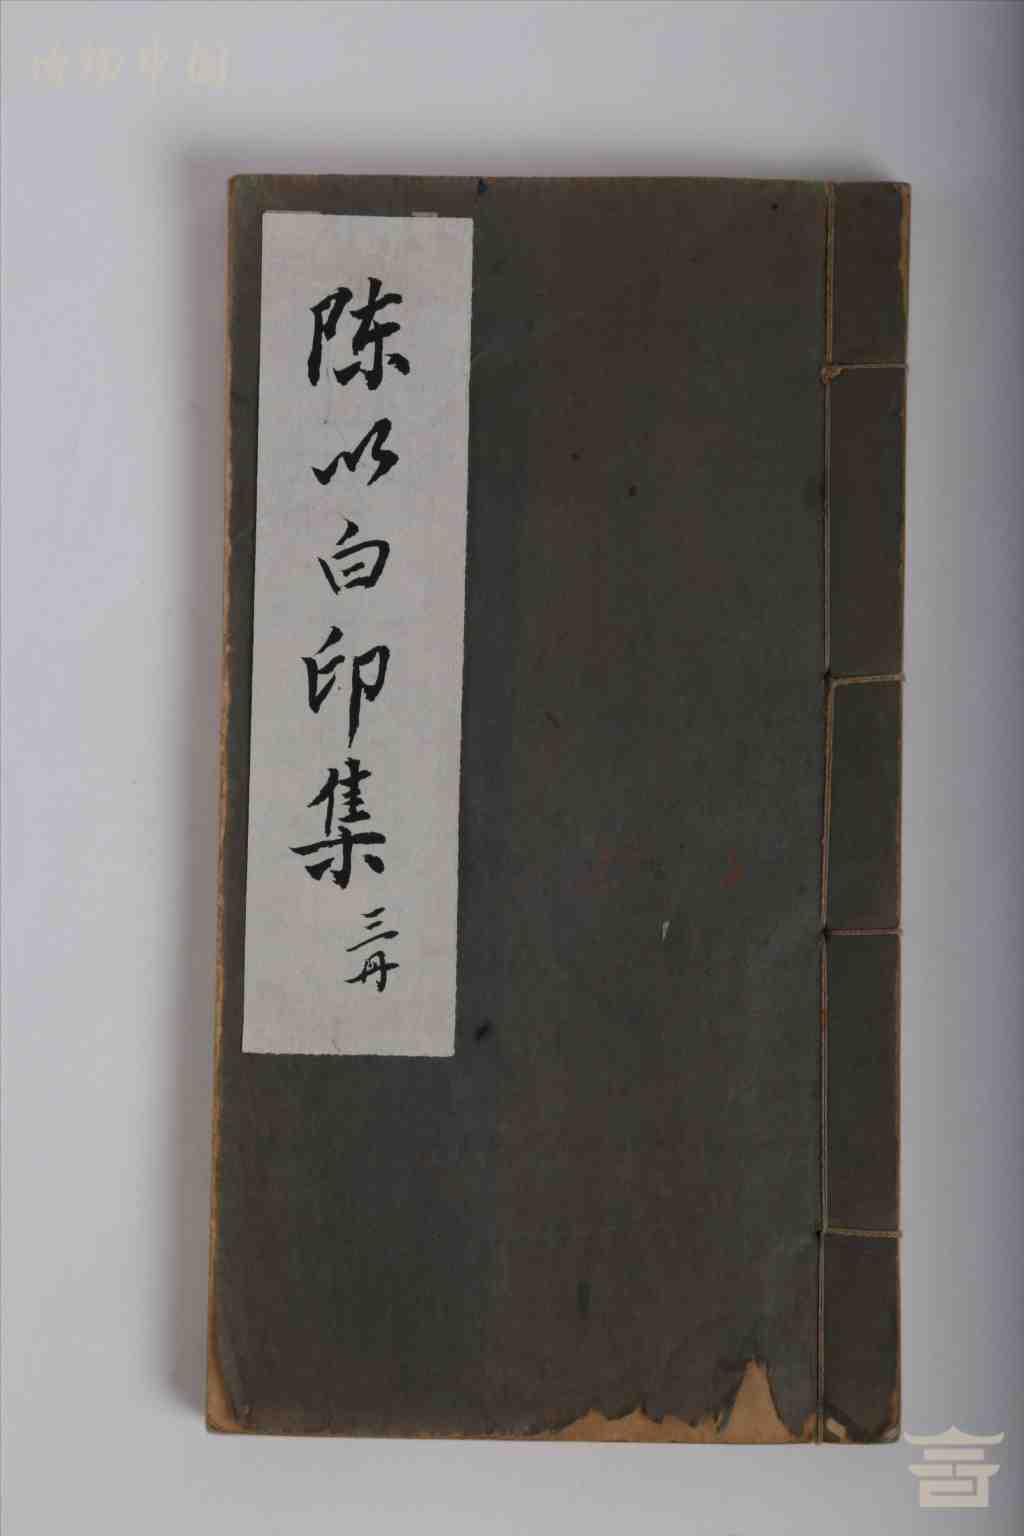 陈以白印集
三册